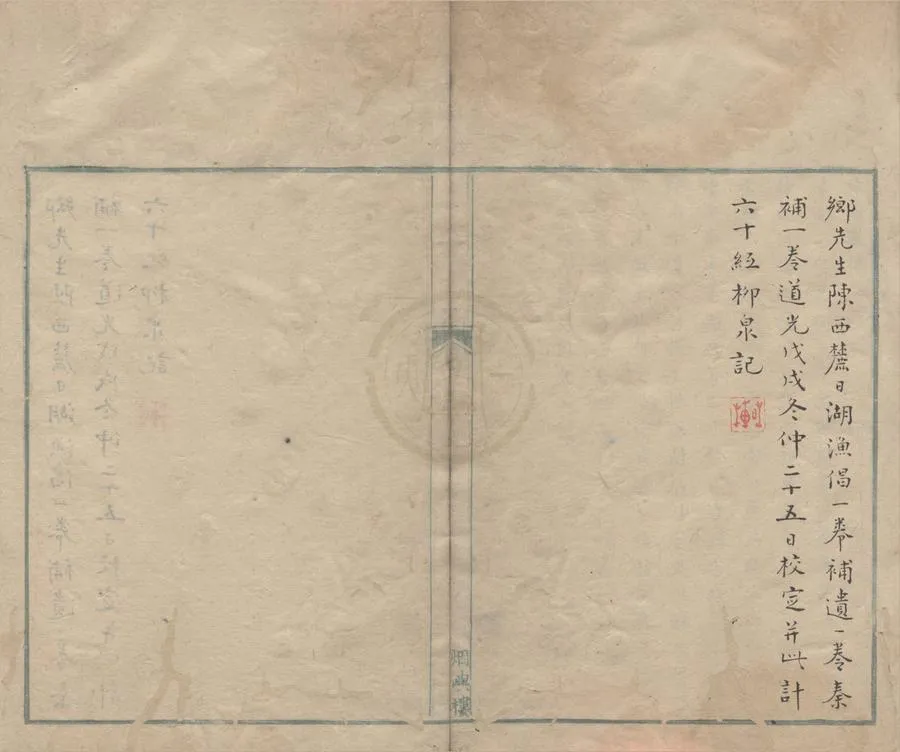 鄉先生陳西麓日湖漁倡一卷補遺一卷秦
補一卷道光戊戌冬仲二十五日校定并此計
六十經柳泉記
烟嶼樓